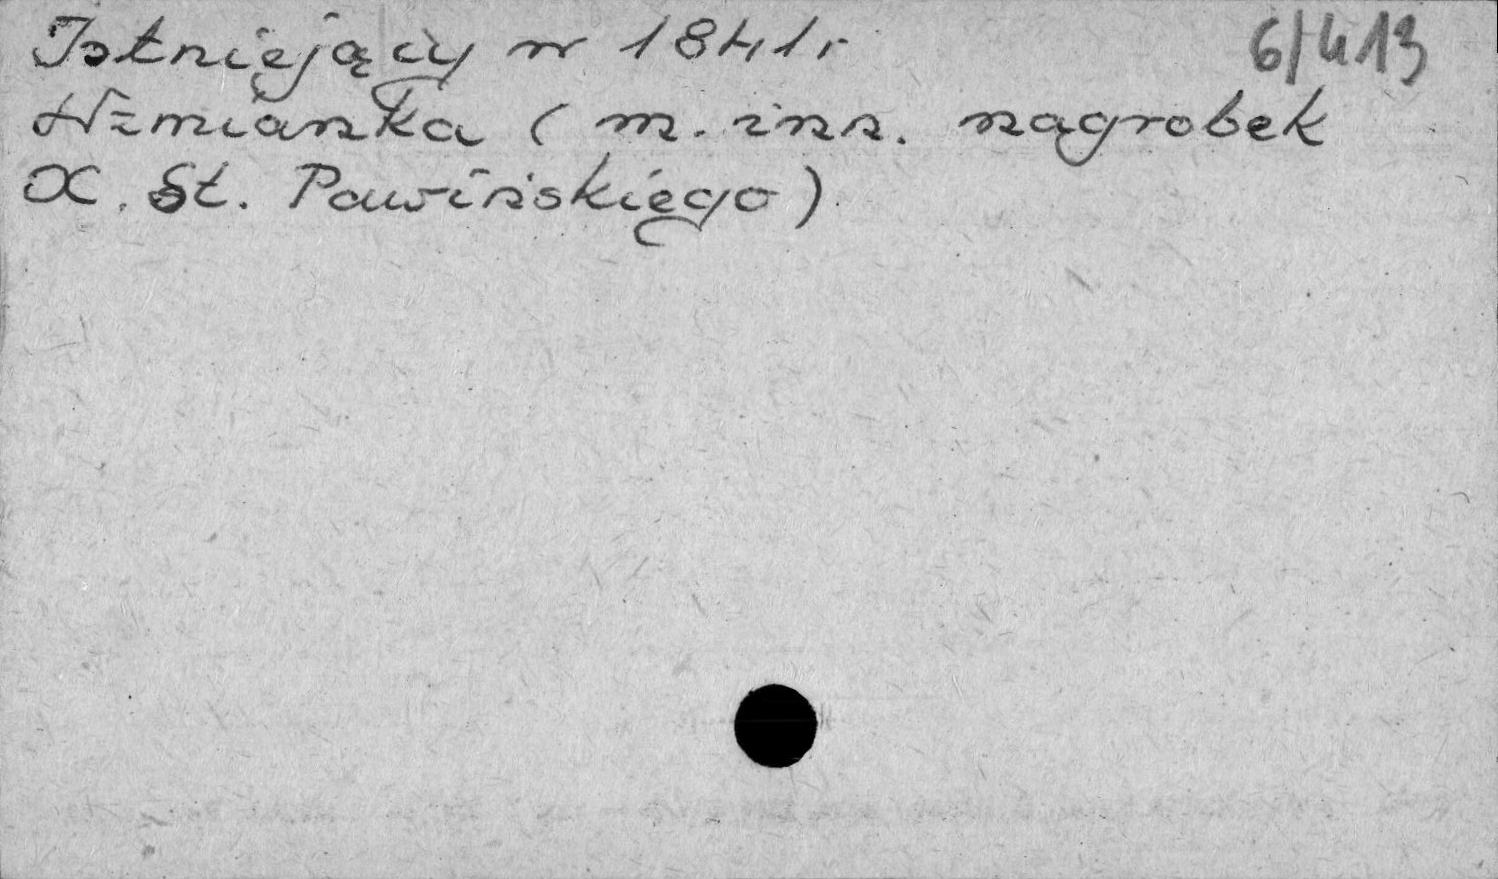 Istniejący w 1841r 6/413
Wzmianka (m. inn. nagrobek
X. St. Pawińskiego)